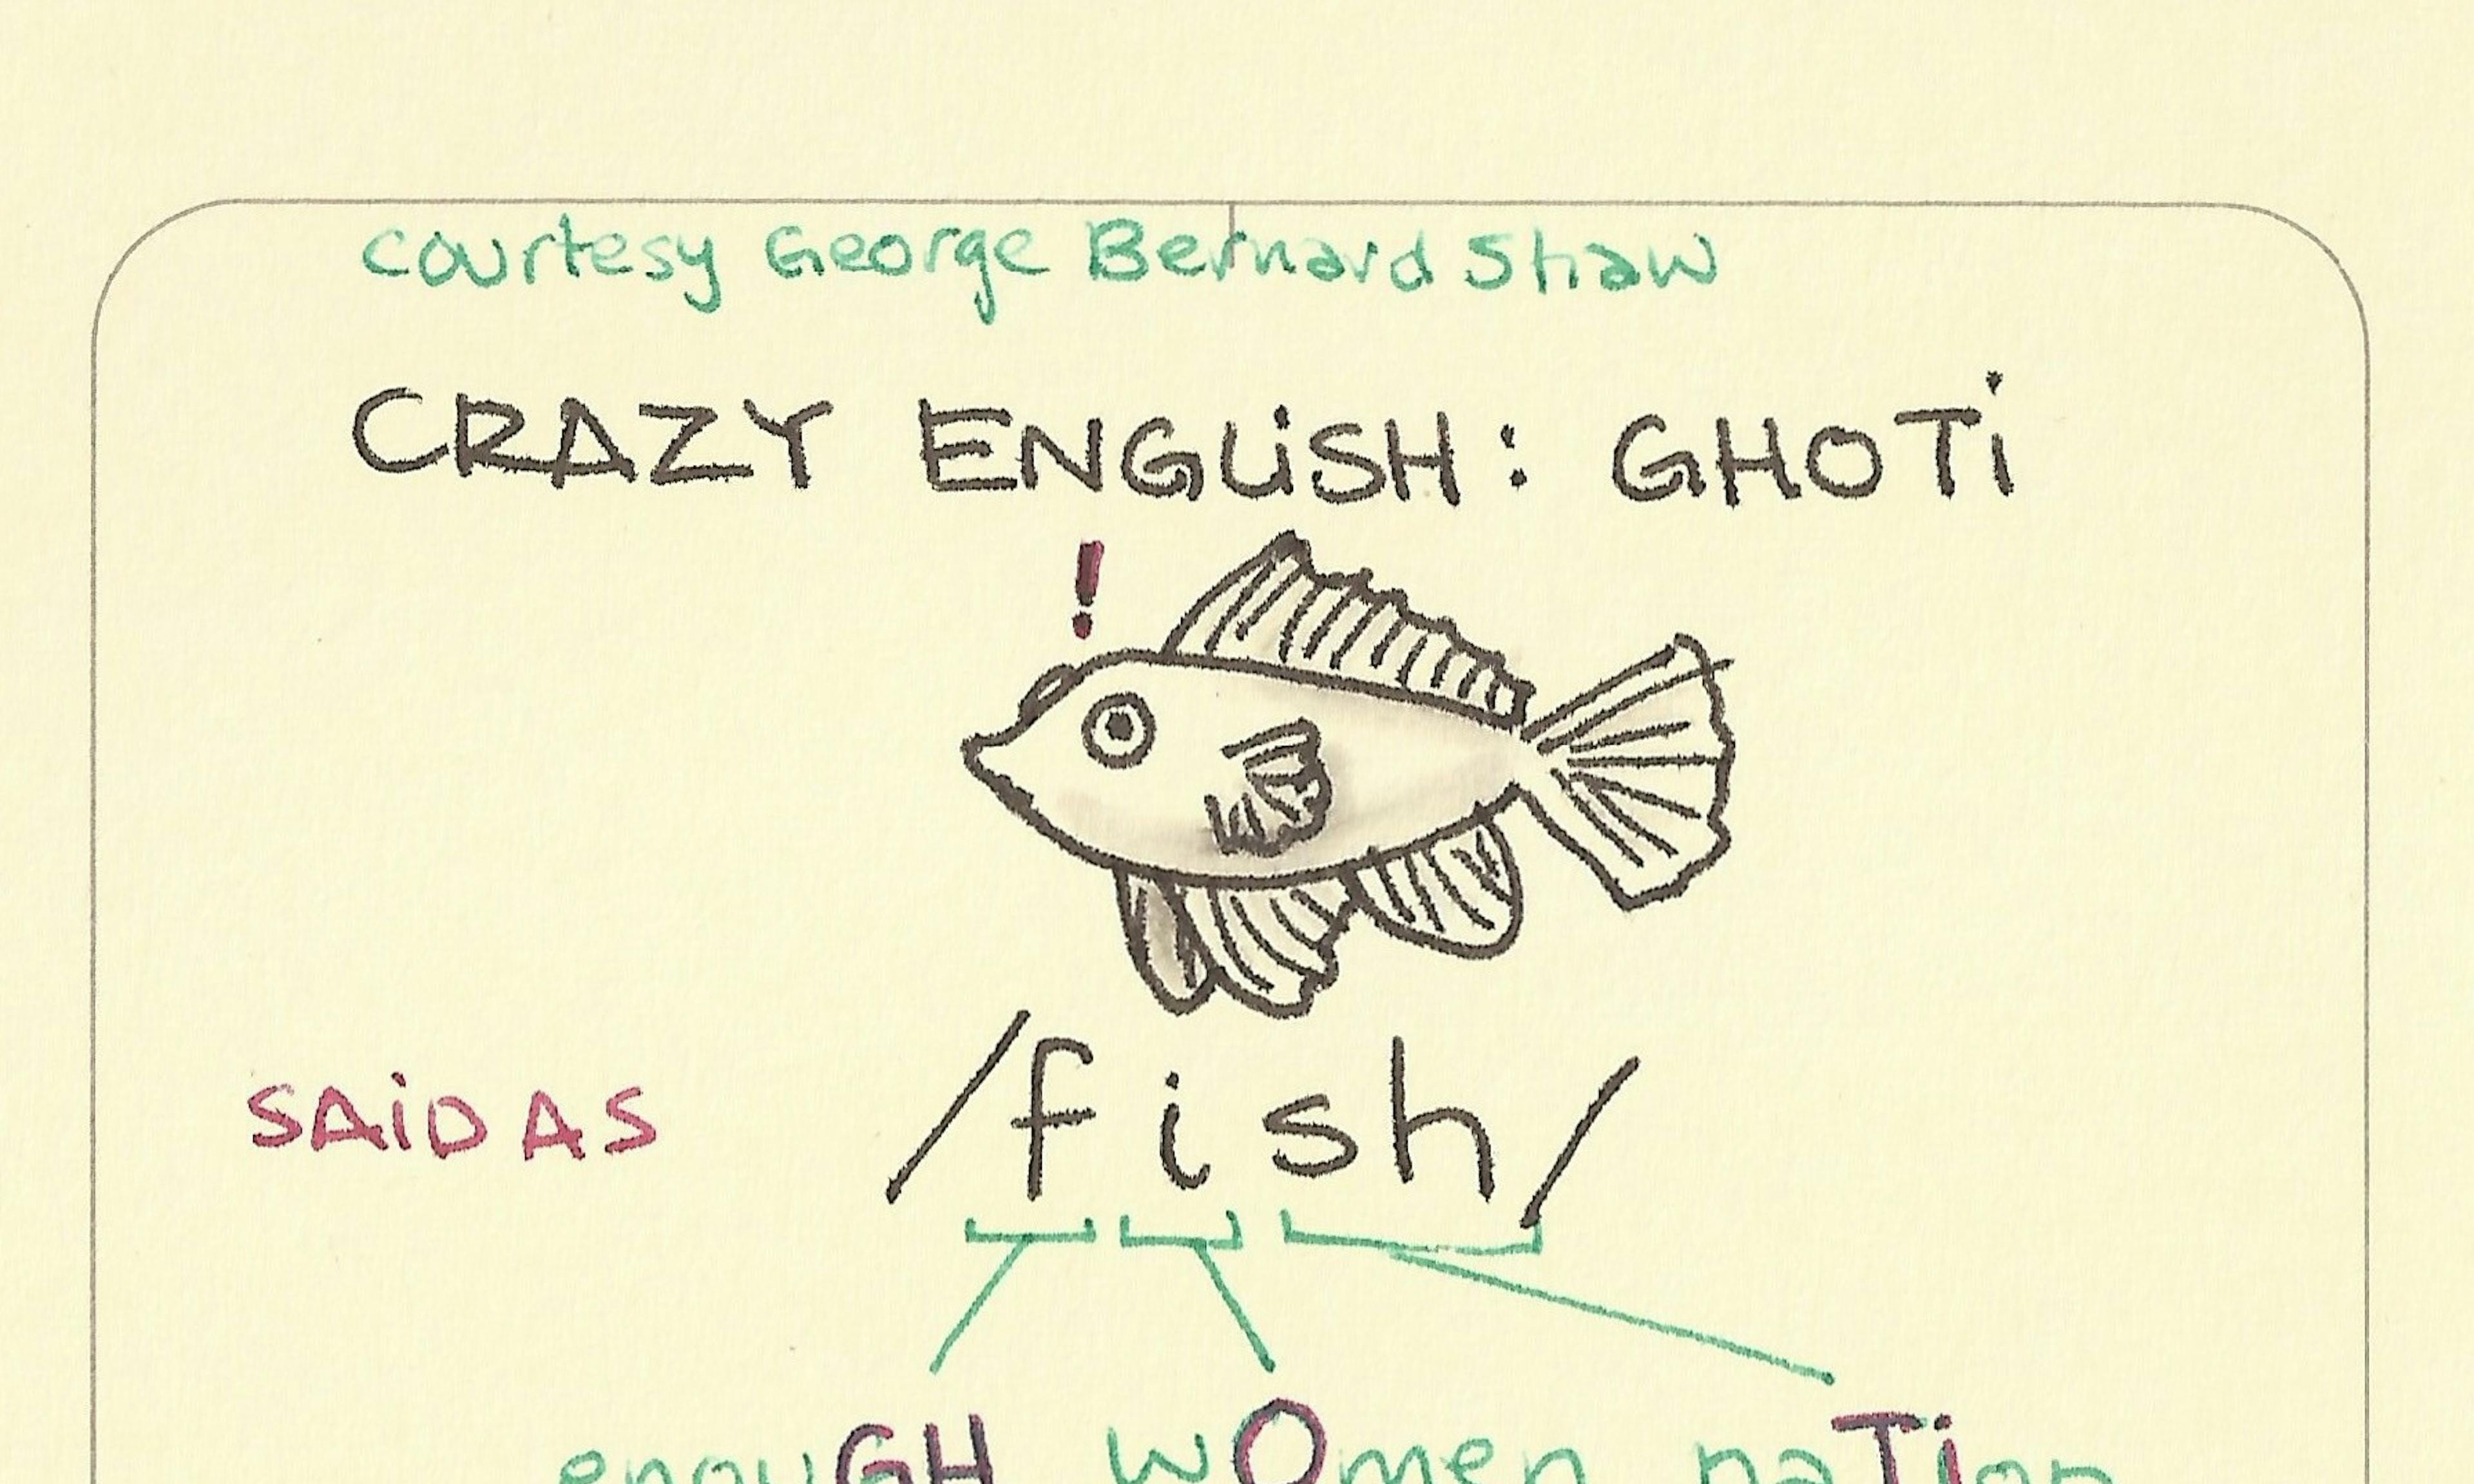 courtesy George Bernard Shaw
CRAZY ENGLiSH: GHOTi
!
SAiD AS /fish/
enouGH wOmen naTion